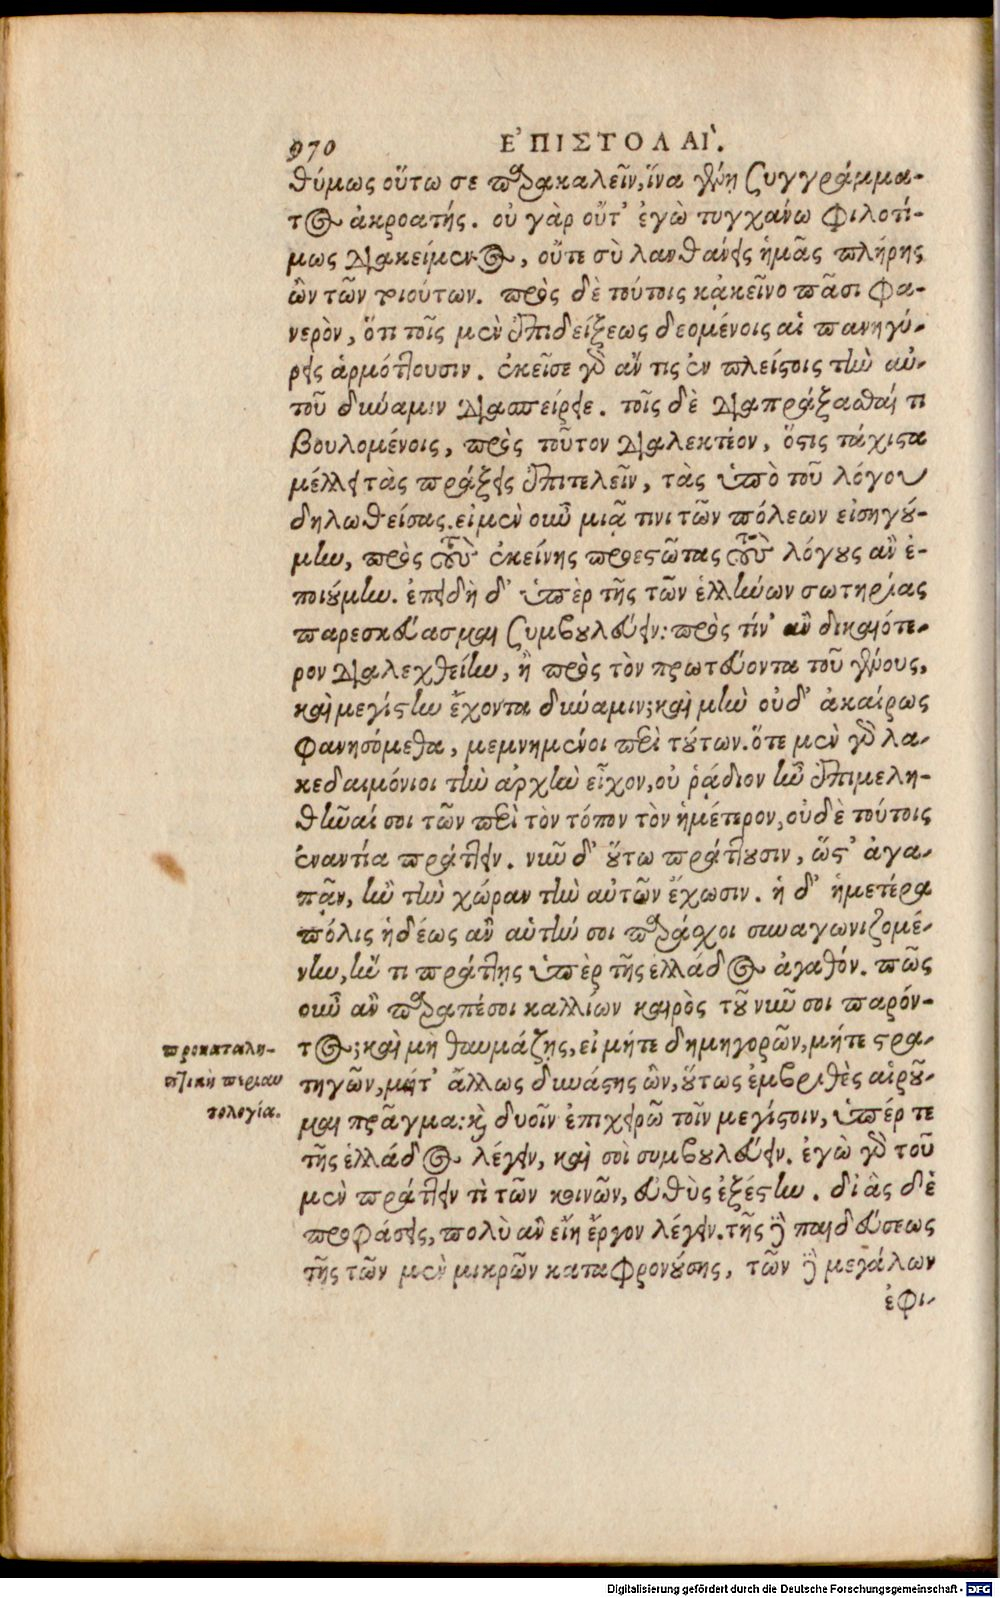 970 ΕΠΙΣΤΟΛΑΙ.
θύμως οὕτω σε παρακαλεῖν, ἵνα γένῃ συγγράμμα-
τος ἀκροατής. οὐ γὰρ οὔτ' ἐγὼ τυγχάνω φιλοτί-
μως διακείμενος, οὔτε σὺ λανθάνεις ἡμᾶς πλήρης
ὢν τῶν τοιούτων. πρὸς δὲ τούτοις κἀκεῖνο πᾶσι φα-
νερὸν, ὅτι τοῖς μὲν ἐπιδείξεως δεομένοις αἱ πανηγύ-
ρεις ἁρμόττουσιν. ἐκεῖσε γὰρ ἄν τις ἐν πλείστοις τὴν αὑ-
τοῦ δύναμιν διασπείρειε. τοῖς δὲ διαπράξασθαί τι
βουλομένοις, πρὸς τοῦτον διαλεκτέον, ὅστις τάχιστα
μέλλει τὰς πράξεις ἐπιτελεῖν, τὰς ὑπὸ τοῦ λόγου
δηλωθείσας. εἰ μὲν οὖν μιᾷ τινι τῶν πόλεων εἰσηγού-
μην, πρὸς τοὺς ἐκείνης προεστῶτας τοὺς λόγους ἂν ἐ-
ποιούμην. ἐπειδὴ δ' ὑπὲρ τῆς τῶν ἑλλήνων σωτηρίας
παρεσκεύασμαι συμβουλεύειν: πρὸς τίν' ἂν δικαιότε-
ρον διαλεχθείην, ἢ πρὸς τὸν πρωτεύοντα τοῦ γένους,
καὶ μεγίστην ἔχοντα δύναμιν; καὶ μὴν οὐδ' ἀκαίρως
φανησόμεθα, μεμνημένοι περὶ τούτων. ὅτε μὲν γὰρ λα-
κεδαιμόνιοι τὴν ἀρχὴν εἶχον, οὐ ῥᾴδιον ἦν ἐπιμελη-
θῆναί σοι τῶν περὶ τὸν τόπον τὸν ἡμέτερον, οὐδὲ τούτοις
ἐναντία πράττειν. νῦν δ' οὕτω πράττουσιν, ὥστ' ἀγα-
πᾷν, ἢν τὴν χώραν τὴν αὑτῶν ἔχωσιν. ἡ δ' ἡμετέρα
πόλις ἡδέως ἂν αὑτήν σοι παράσχοι συναγωνιζομέ-
νην, ἤν τι πράττῃς ὑπὲρ τῆς ἑλλάδος ἀγαθόν. πῶς
οὖν ἂν παραπέσοι καλλίων καιρὸς τοῦ νῦν σοι παρόν-
τος; καὶ μὴ θαυμάζῃς, εἰ μήτε δημηγορῶν, μήτε στρα-
τηγῶν, μήτ' ἄλλως δυνάστης ὢν, οὕτως ἐμβριθὲς αἱροῦ-
μαι πρᾶγμα: καὶ δυοῖν ἐπιχειρῶ τοῖν μεγίστοιν, ὑπέρ τε
τῆς ἑλλάδος λέγειν, καὶ σοὶ συμβουλεύειν. ἐγὼ γὰρ τοῦ
μὲν πράττειν τὶ τῶν κοινῶν, εὐθὺς ἐξέστην. δι' ἃς δὲ
προφάσεις, πολὺ ἂν εἴη ἔργον λέγειν. τῆς δὲ παιδεύσεως
τῆς τῶν μὲν μικρῶν καταφρονούσης, τῶν δὲ μεγάλων
ἐφι-
προκαταλη-
πτικὴ περιαυ
τολογία.
Digitalisierung gefördert durch die Deutsche Forschungsgemeinschaft - DFG